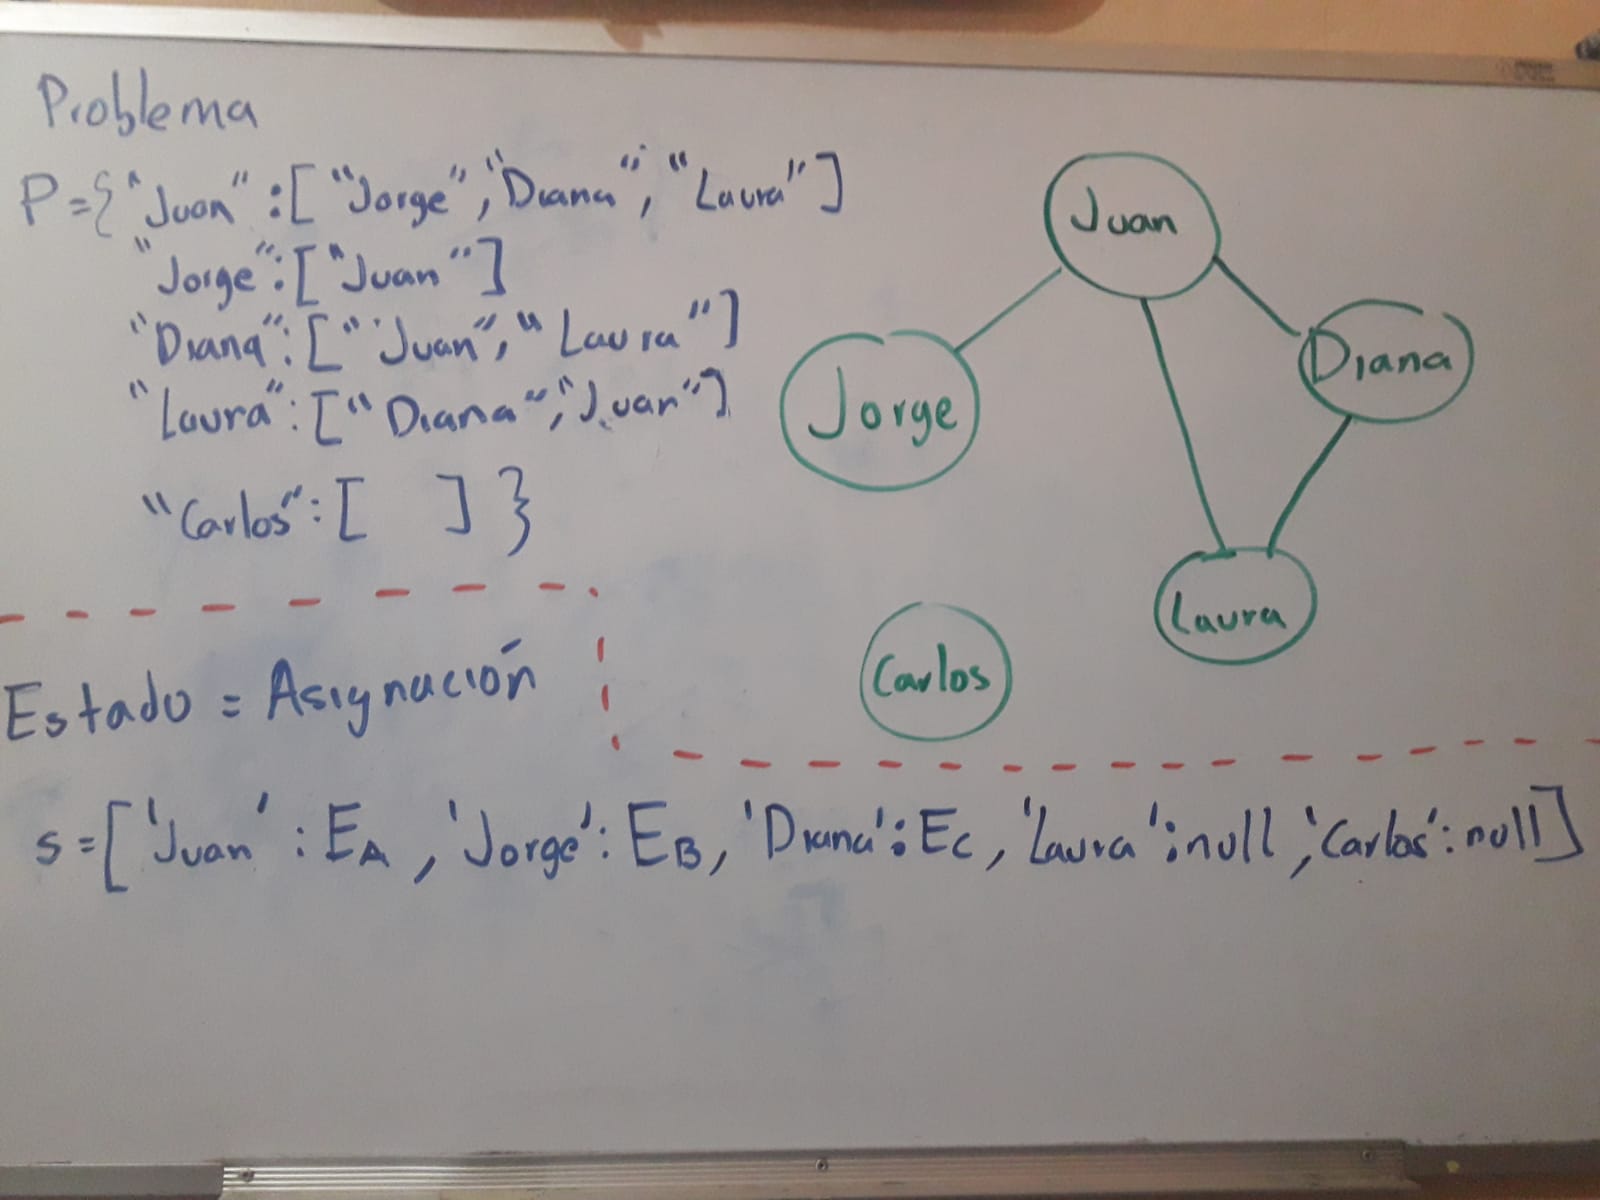 Problema
P={"Juan":["Jorge","Diana","Laura"]
"Jorge":["Juan"]
"Diana":["Juan","Laura"]
"Laura":["Diana","Juan"]
"Carlos":[ ]}
Juan
Jorge
Diana
Laura
Carlos
Estado = Asignación
s=['Juan':EA,'Jorge':EB,'Diana':EC,'Laura':null,'Carlos':null]